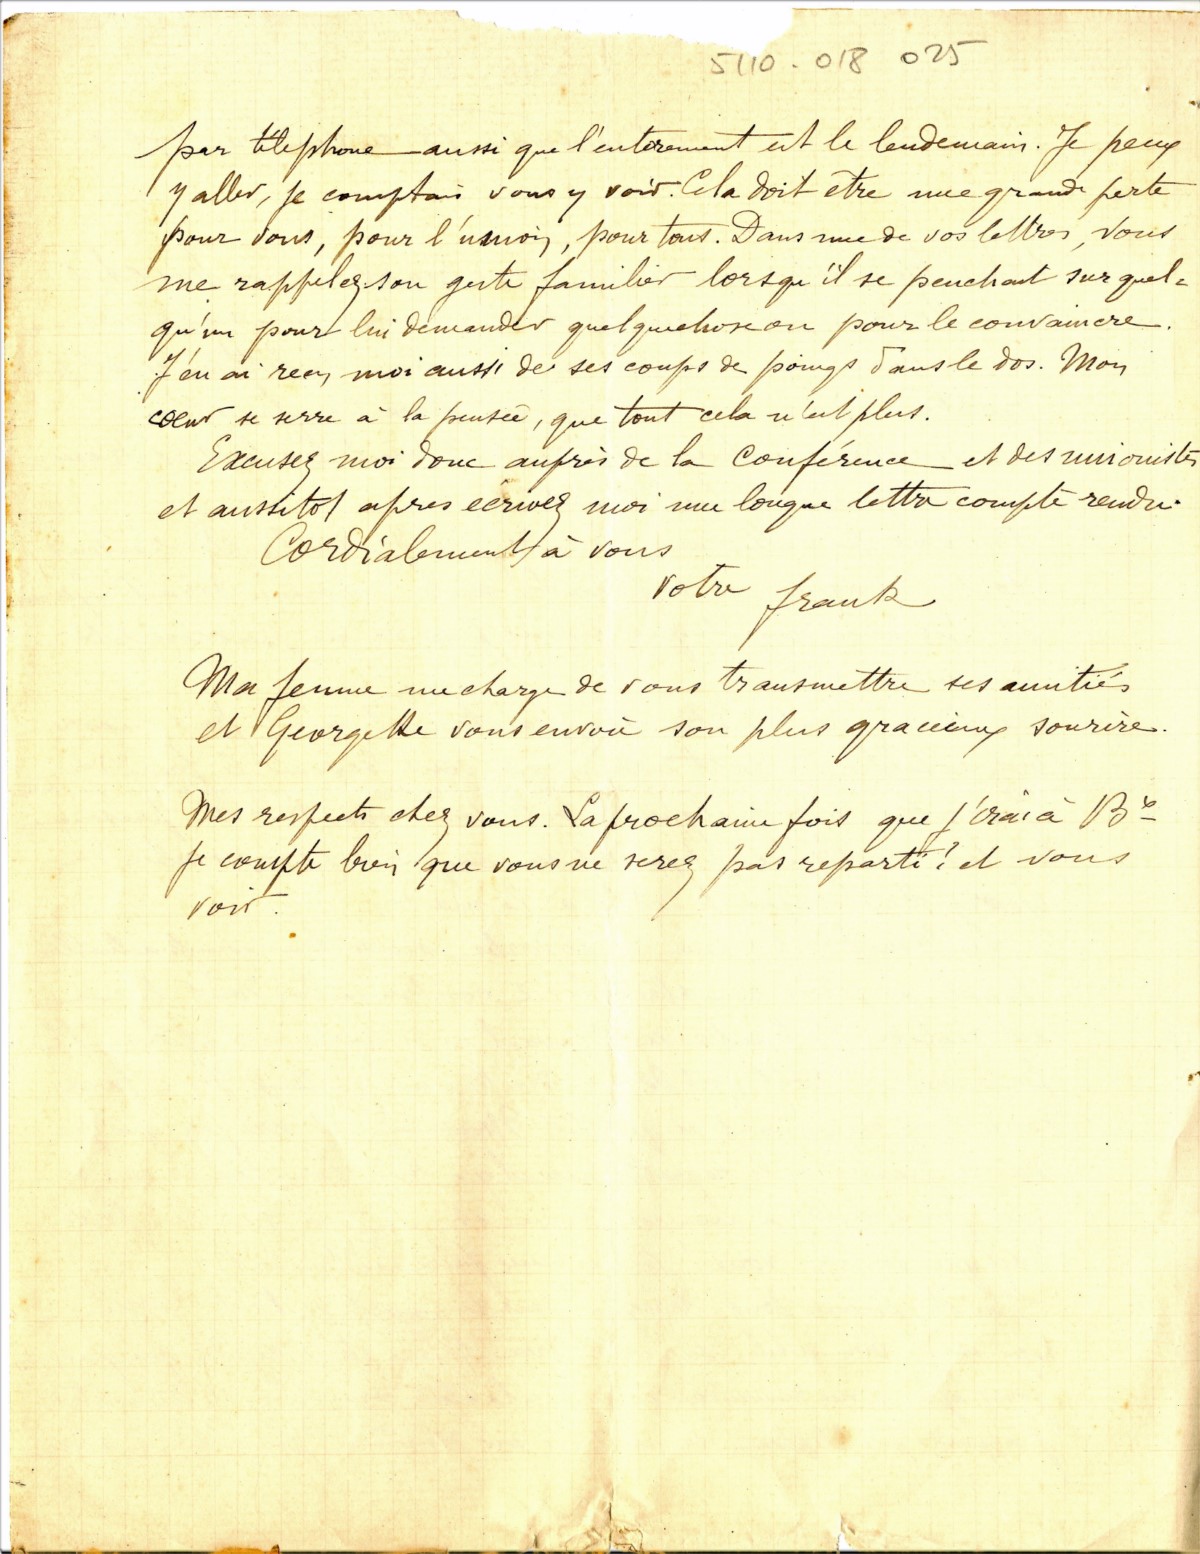 5110.018 025
par télephone aussi que l'enterement est le lendemain. Je peux
y aller, je comptais vous y voir. Cela doit être une grande perte
pour vous, pour l'union, pour tous. Dans une de vos lettres, vous
me rappelez son geste familier lorsqu'il se penchant sur quel=
qu'un pour lui demander quelquechose ou pour le convaincre.
J'en ai reçu moi aussi de ses coups de poings dans le dos. Mon
cœur se serre à la pensée, que tout cela n'est plus.
Excusez moi donc auprès de la Conférence et des unionistes
et aussitot apres ecrivez moi une longue lettre compte rendu.
Cordialement à vous
votre frank
Ma femme me charge de vous transmettre ses amitiés
et Georgette vous envoie son plus gracieux sourire.
Mes respects chez vous. La prochaine fois que j'irai à Ble
je compte bien que vous ne serez pas reparti? et vous
voir.